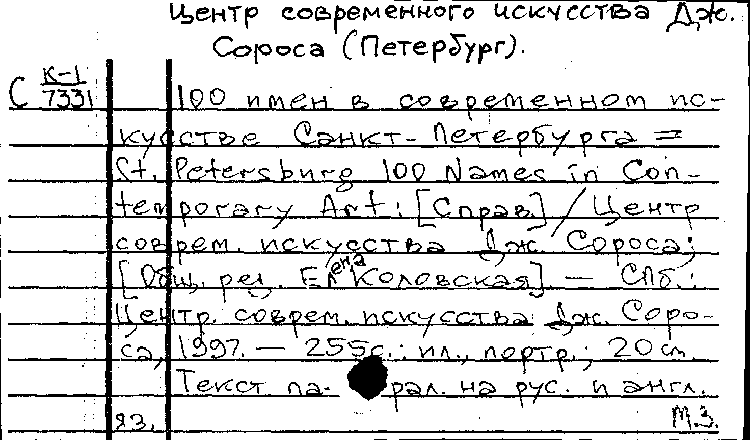 Центр современного искусства Дж.
Сороса (Петербург).
С К-1
7331
100 имен в современном ис-
кусстве Санкт-Петербурга =
St. Petersburg 100 Names in Con-
temporary Art: [Справ] / Центр
соврем. искусства Дж. Сороса;
[Общ. ред. Елена Коловская] — СПб.:
Центр. соврем. искусства Дж. Соро-
са, 1997. — 255с.: ил., портр.; 20см.
Текст па- рал. на рус. и англ.
яз. М.З.